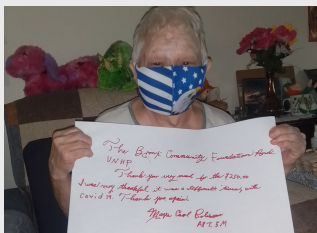 The Bronx Community Foundation And
VNHP
Thank you very much for the $250.00
I was very thankful, it was a difficult times with
Covid 19. Thank you again
APT. 5M